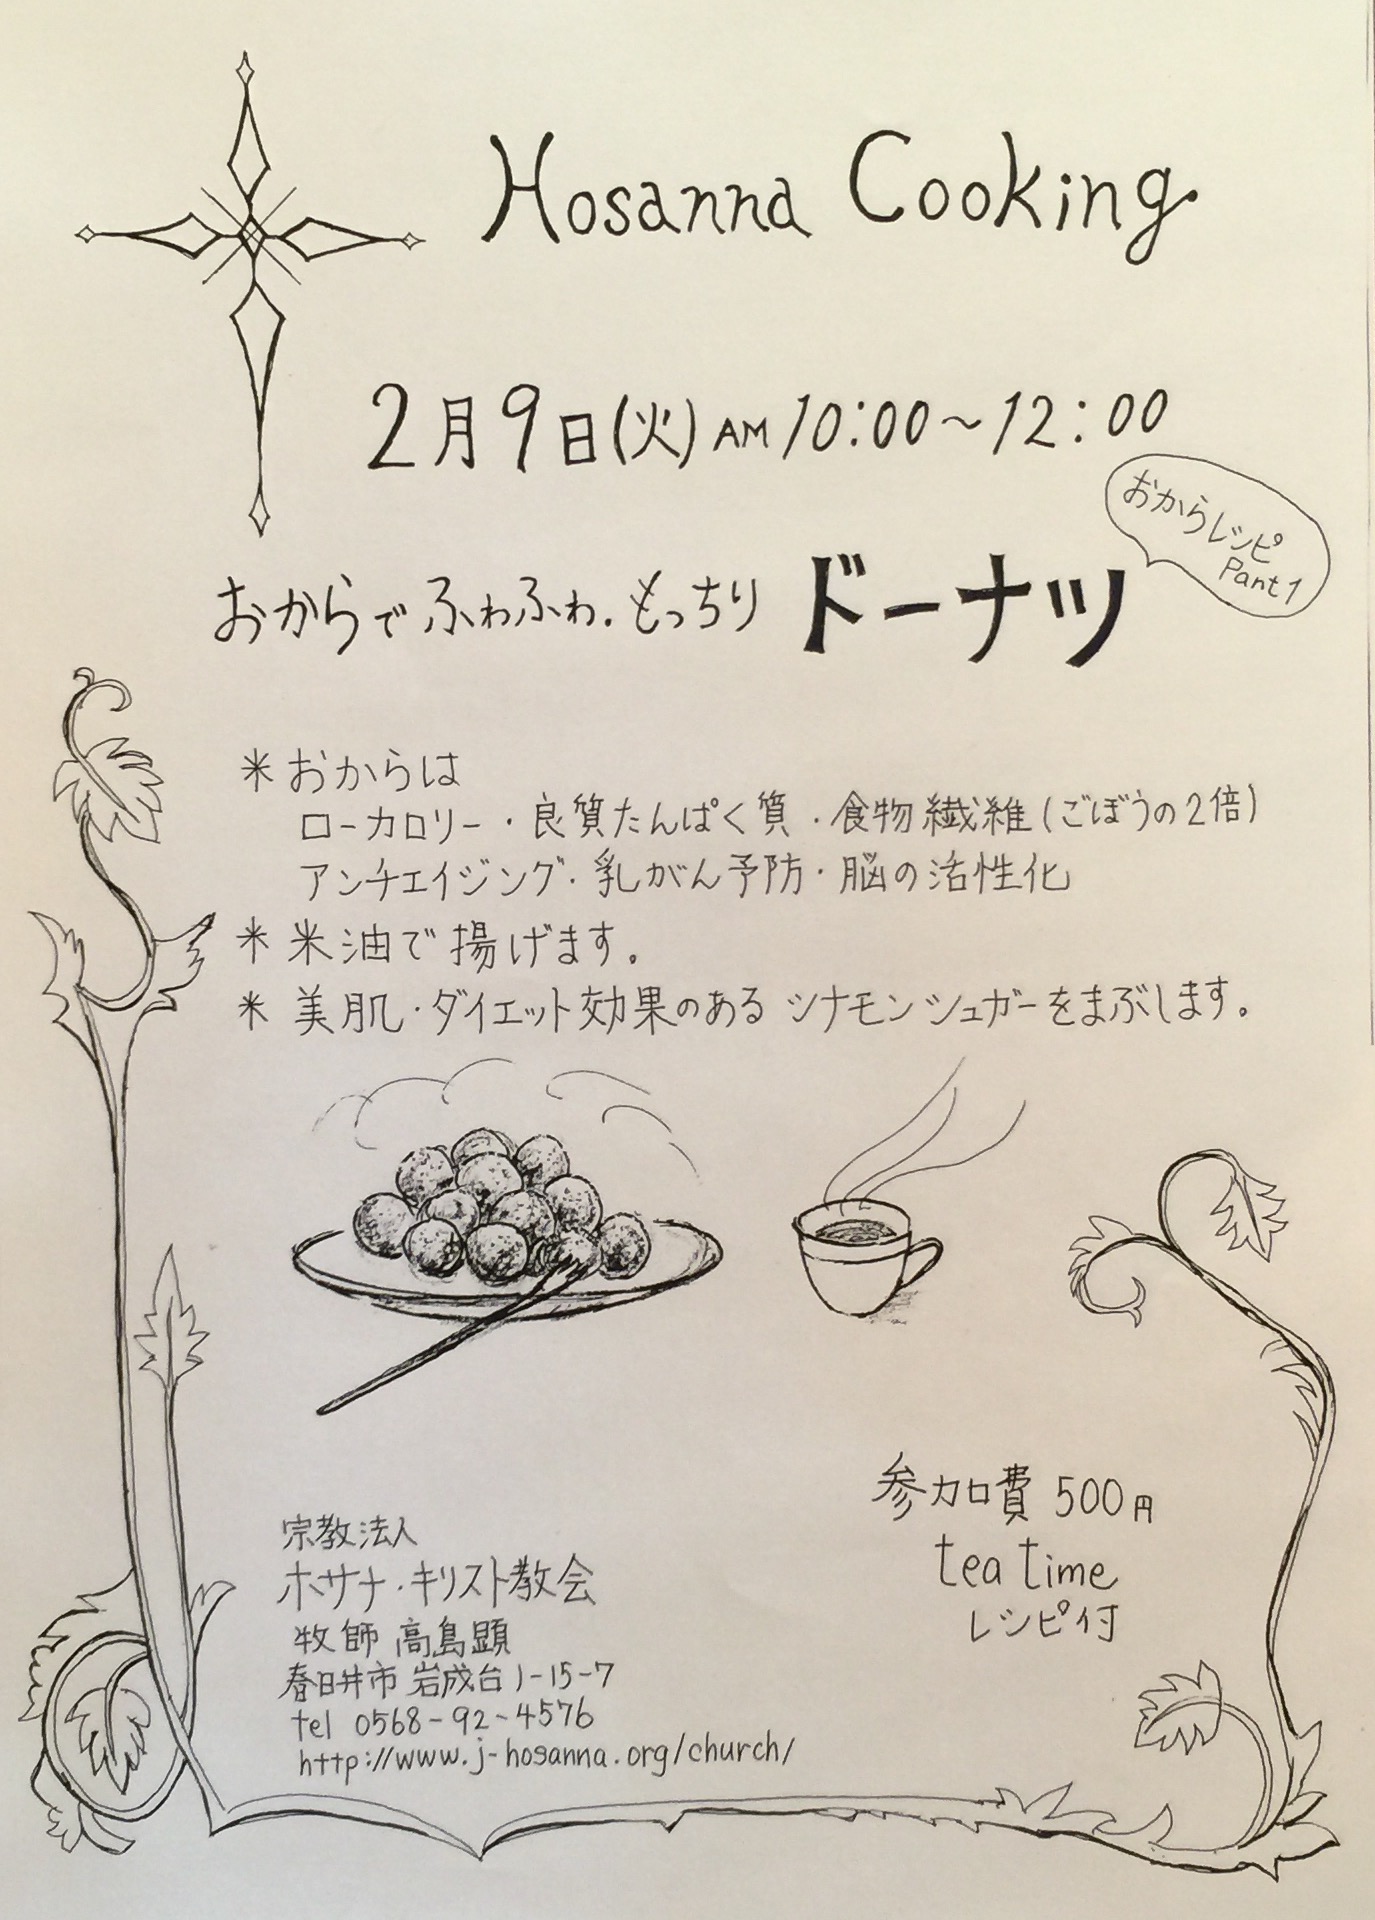 Hosanna Cooking
2月9日(火) AM 10:00〜12:00
おからレシピ
Part 1
おからで ふわふわ.もっちり ドーナツ
＊おからは
ローカロリー・良質たんぱく質・食物繊維(ごぼうの2倍)
アンチエイジング・乳がん予防・脳の活性化
＊米油で揚げます。
＊美肌・ダイエット効果のある シナモンシュガーをまぶします。
参加費 500円
tea time
レシピ付
宗教法人
ホサナ・キリスト教会
牧師 高島顕
春日井市 岩成台1-15-7
tel 0568-92-4576
http://www.j-hosanna.org/church/